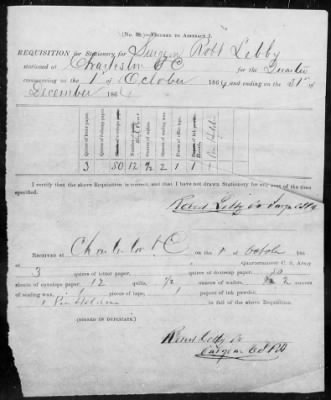 (No. 38.)—VOUCHER TO ABSTRACT J.
REQUISITION for Stationery for Surgeon Robt Lebby
stationed at Charleston S C for the Quarter
commencing on the 1st of October 1864 and ending on the 31st of
December 1864
Quires of letter paper.
Quires of foolscap paper.
Ounces of sealing wax.
Papers of ink powder.
3 50 12 ½ 2 1 1
I certify that the above Requisition is correct, and that I have not drawn Stationery for any part of the time
specified.
Robert Lebby Sr Surgn
RECEIVED at Charleston S C on the 1 October 186
quartermaster C. S. Army
3 quires of letter paper, quires of foolscap paper, 50
sheets of envelope paper, 12 quills, ½ ounces of wafers, 2 ounces
of sealing wax, 1 pieces of tape, 1 papers of ink powder,
in full of the above Requisition.
(SIGNED IN DUPLICATE.)
Robert Lebby Sr
Surgeon